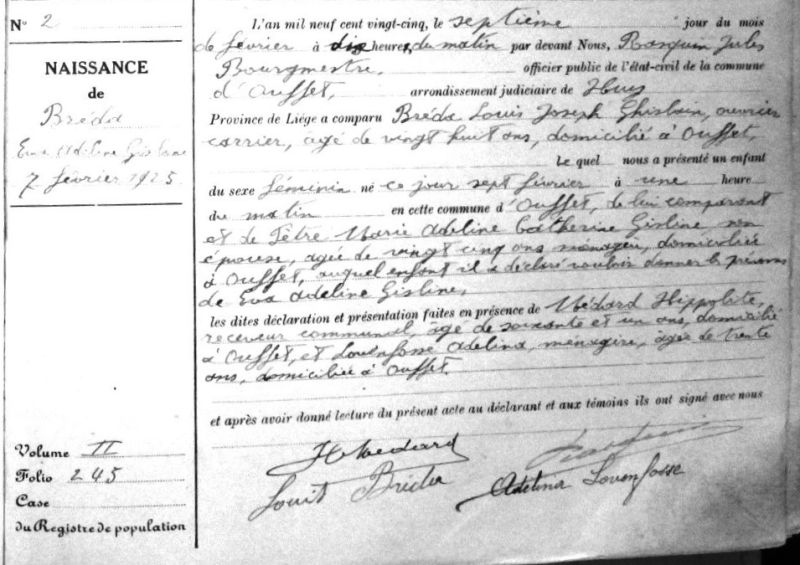 N° 2
NAISSANCE
de
Bréda
Eva Adeline Gisline
7 février 1925
Volume II
Folio 245
Case
du Registre de population
L'an mil neuf cent vingt-cinq, le septième jour du mois
de février à dix heures, du matin par devant Nous, Rasquin Jules
Bourgmestre, officier public de l'état-civil de la commune
d'Ouffet, arrondissement judiciaire de Huy
Province de Liége a comparu Bréda Louis Joseph Ghislain, ouvrier
carrier, âgé de vingt huit ans, domicilié à Ouffet,
Le quel nous a présenté un enfant
du sexe féminin né ce jour sept février à une heure
du matin en cette commune d'Ouffet, de lui comparant
et de Fêtre Marie Adeline Catherine Gisline, son
épouse, agée de vingt cinq ans, domiciliée
à Ouffet, auquel enfant il a déclaré vouloir donner le prénoms
de Eva Adeline Gisline,
les dites déclaration et présentation faites en présence de Médard Hippolite,
receveur communal, âgé de soixante et un ans, domicilié
à Ouffet, et Louenfosse Adelina, ménagère, âgée de trente
ans, domiciliée à Ouffet.
et après avoir donné lecture du présent acte au déclarant et aux témoins ils ont signé avec nous
H Medard
Louis Bréda Adelina Louenfosse